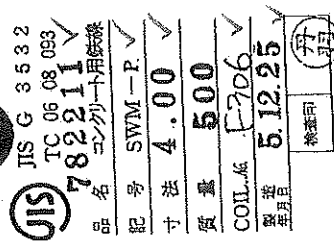 JIS
JIS G 3532
TC 06 08 093
782211
品名 コンクリート用鉄線
記号 SWM-P
寸法 4.00
質量 500
COIL.№ E-706
製造年月日 5.12.25
検査印 丹羽